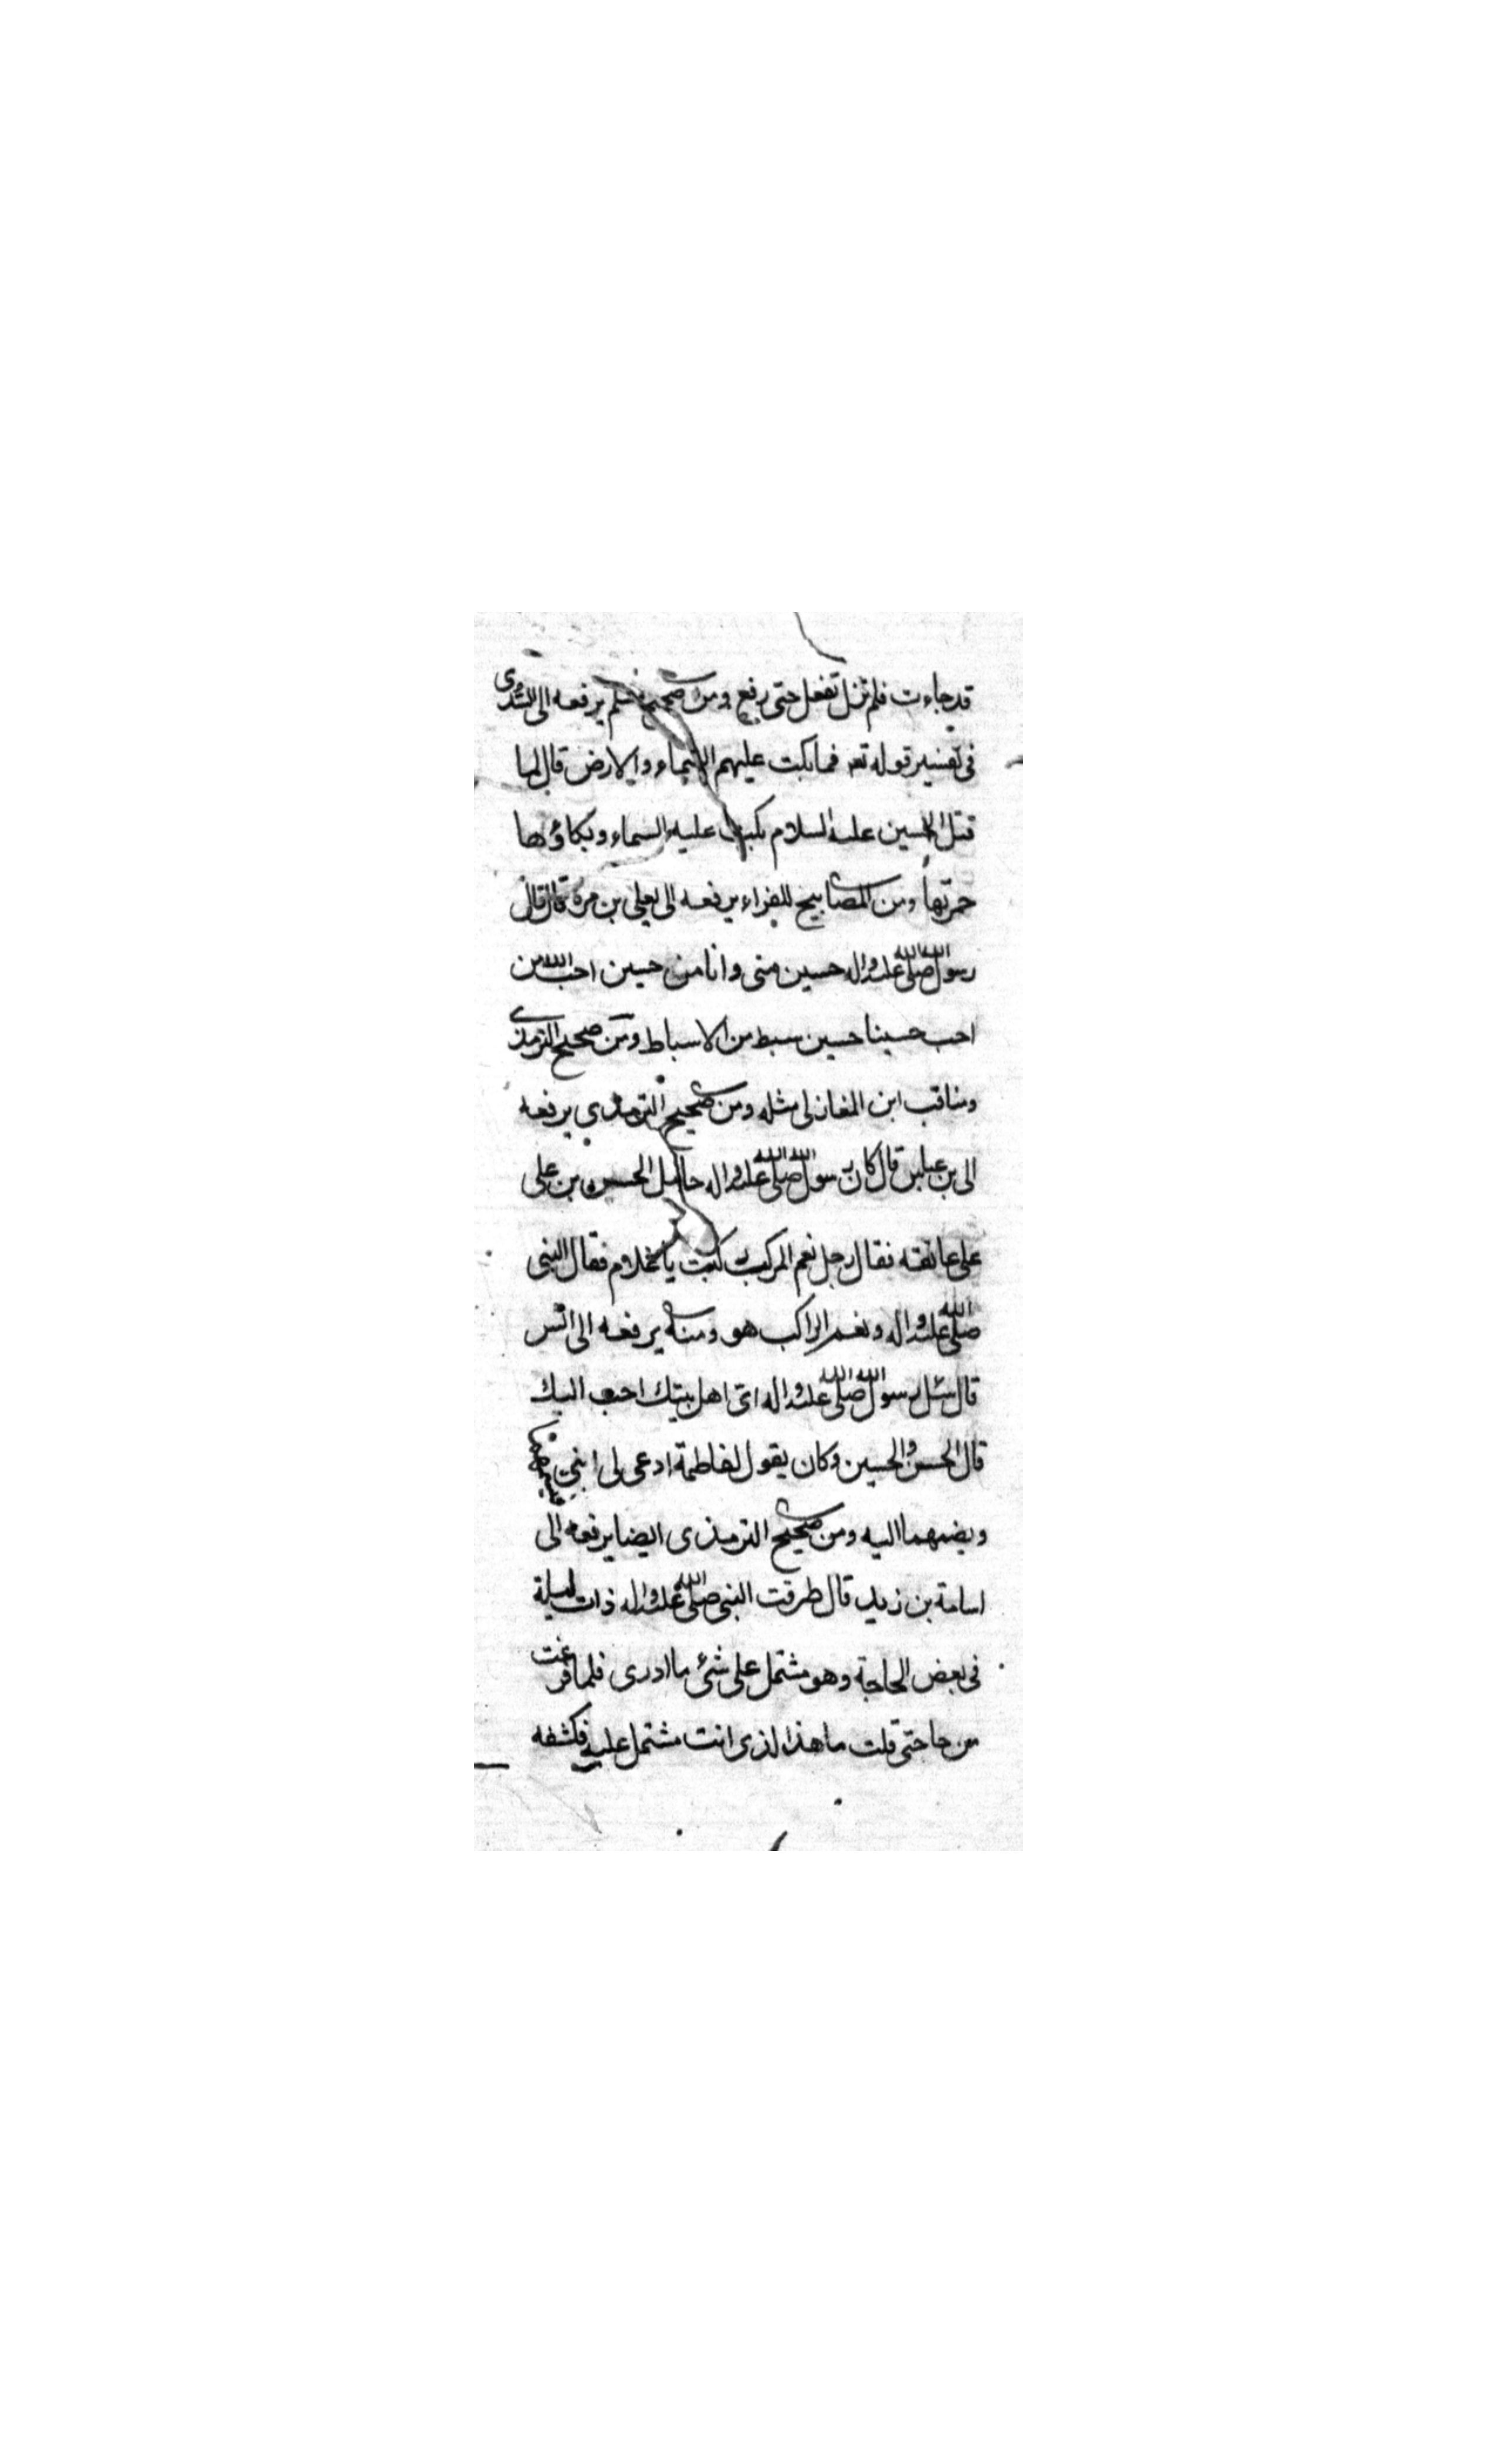 قد جاءت فلم تزل تفعل حتى رفع ومن صحيح مسلم يرفعه الى السدى
فى تفسير قوله تعه فما بكت عليهم السماء والارض قال لما
قتل الحسين عليه السلام بكت عليه السماء وبكاؤها
حمرتها ومن المصابيح للفراء يرفعه الى يعلى بن مرة قال قال
رسول الله صلى الله عليه واله حسين منى وانا من حسين احب الله من
احب حسينا حسين سبط من الاسباط ومن صحيح الترمذى
ومناقب ابن المغازلى مثله ومن صحيح الترمذى يرفعه
الى بن عباس قال كان رسول الله صلى الله عليه واله حامل الحسين بن على
على عاتقه فقال رجل نعم المركب ركبت يا غلام فقال النبى
صلى الله عليه واله ونعم الراكب هو ومنه يرفعه الى انس
قال سئل رسول الله صلى الله عليه واله اى اهل بيتك احب اليك
قال الحسن والحسين وكان يقول لفاطمة ادعى لى ابنى
ويضمهما اليه ومن صحيح الترمذى ايضا يرفعه الى
اسامة بن زيد قال طرقت النبى صلى الله عليه واله ذات ليلة
فى بعض الحاجة وهو مشتمل على شئ ما ادرى فلما فرغت
من حاجتى قلت ما هذا لذى انت مشتمل عليه فكشفه